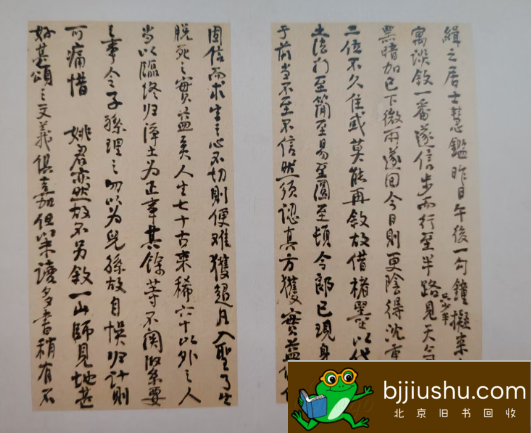 緝之居士慧鑑昨日午後一句鐘擬来
寓談敘一番遂信步而行至半路見天
黑暗加已下微雨遂回今日則更陰得沈重
二位不久住或莫能再敘故借楮墨以代
土法门至简至易至圆至頓今郎已現身
于前当不至不信然须認真方獲實益
固信而求生之心不切則便难獲超凡入聖了生
脱死之實益矣人生七十古来稀六十以外之人
当以臨终归淨土为正事其餘等不関緊要
之事令子孫理之勿以为兒孫故自悞归計則
可痛惜 姚君亦然故不另敘一山師見地甚
好其頌之文義俱嘉但以未讀多書稍有不
bjjiushu.com
北京旧书回收